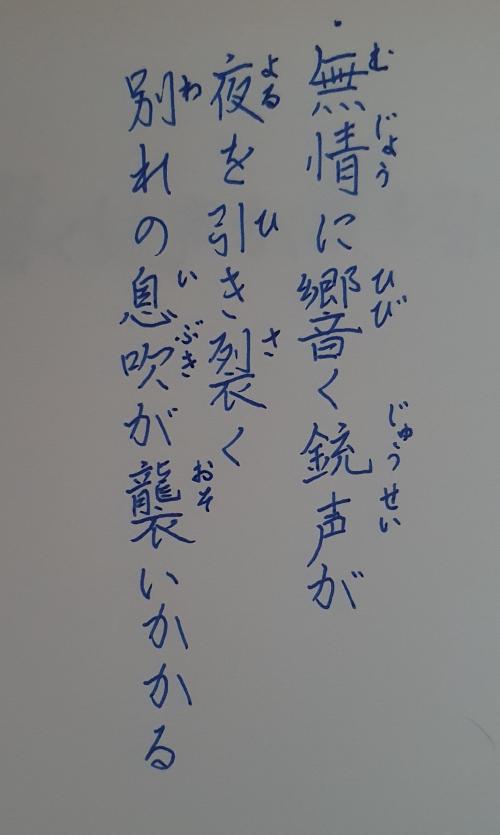 無情に響く銃声が
むじょう ひび じゅうせい
夜を引き裂く
よる ひ さ
別れの息吹が襲いかかる
わ いぶき おそ